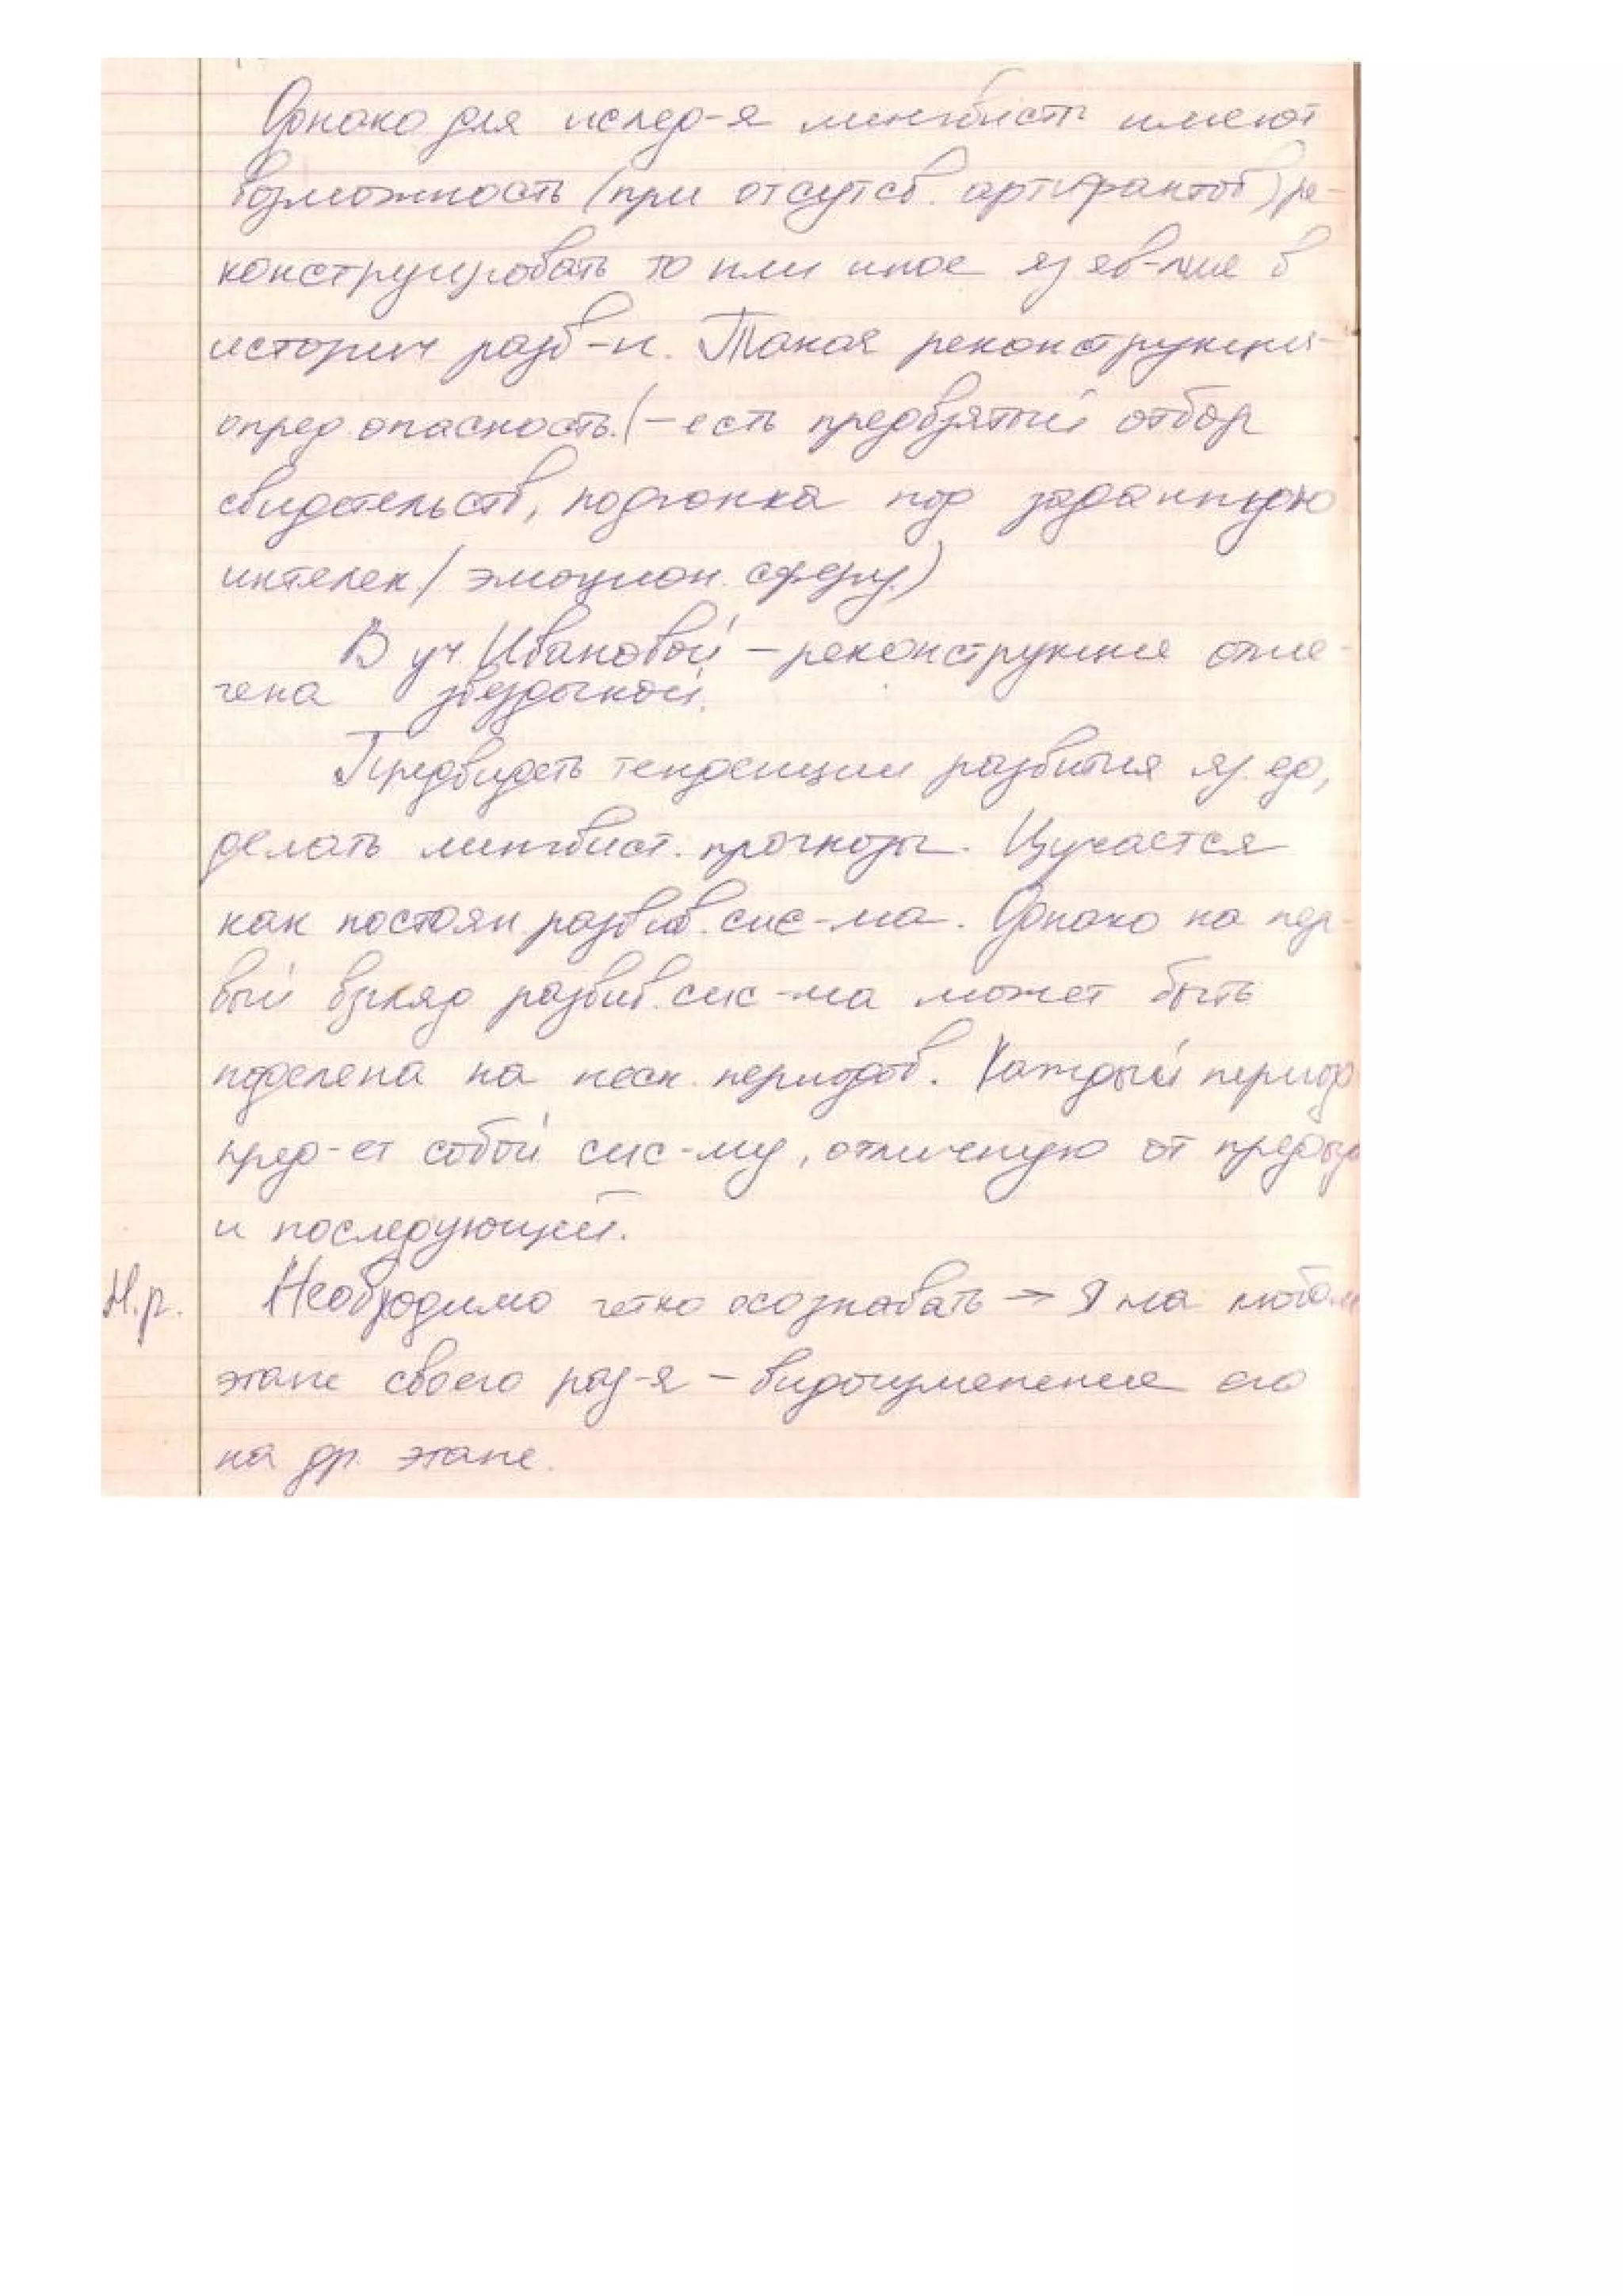 Однако для ислед-я лингвисты имеют
возможность (при отсутсв. артифактов) ре-
конструировать то или иное яз яв-ние в
историч разв-и. Такая реконструкция-
опред опасность. (- есть предвзятый отбор
свидетельств, подгонка под заданную
интелек / эмоцион. сферу.)
В уч. Ивановой - реконструкция отме-
чена звездочкой.
Предвидеть тенденции развития яз. ед,
делать лингвист. прогнозы. Изучается
как постоян. развив. сис-ма. Однако на пер-
вый взгляд развив. сис-ма может быть
поделена на неск. периодов. Каждый период
пред-ет собой сис-му, отличную от предыд
и последующей.
Н.р. Необходимо четко осознавать → Я на любом
этапе своего раз-я - видоизменение его
на др. этапе.